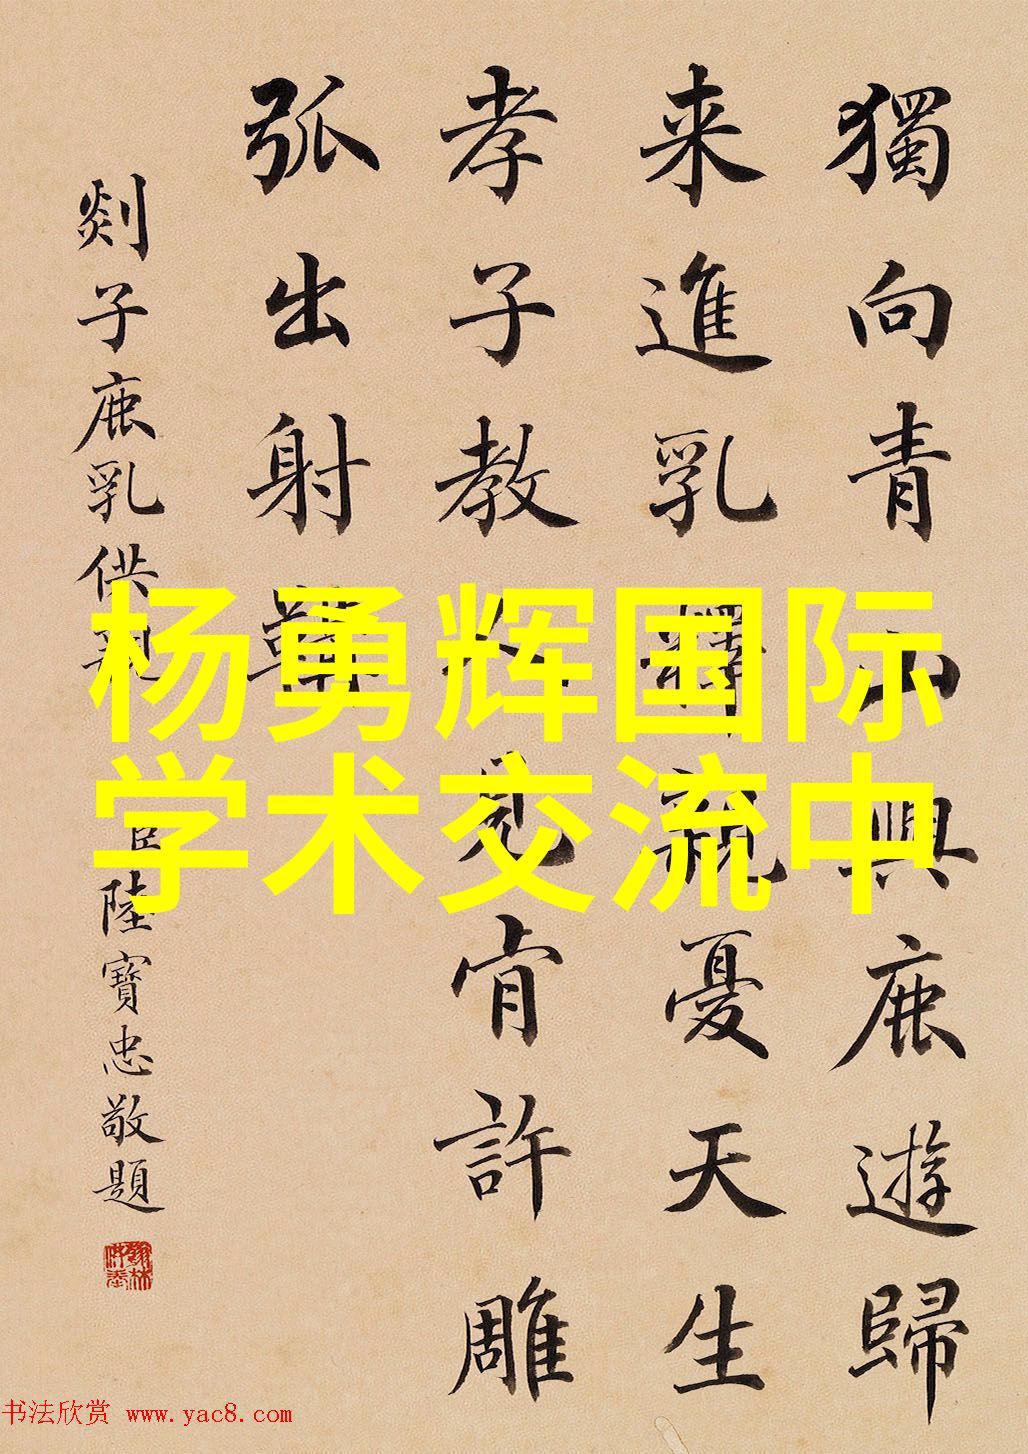 獨向青山與鹿遊歸
来進乳釋親憂天生
孝子教人見肯許雕
弧出射
剡子鹿乳供親
臣陸寶忠敬題
杨勇辉国际
学术交流中
书法欣赏 www.yac8.com